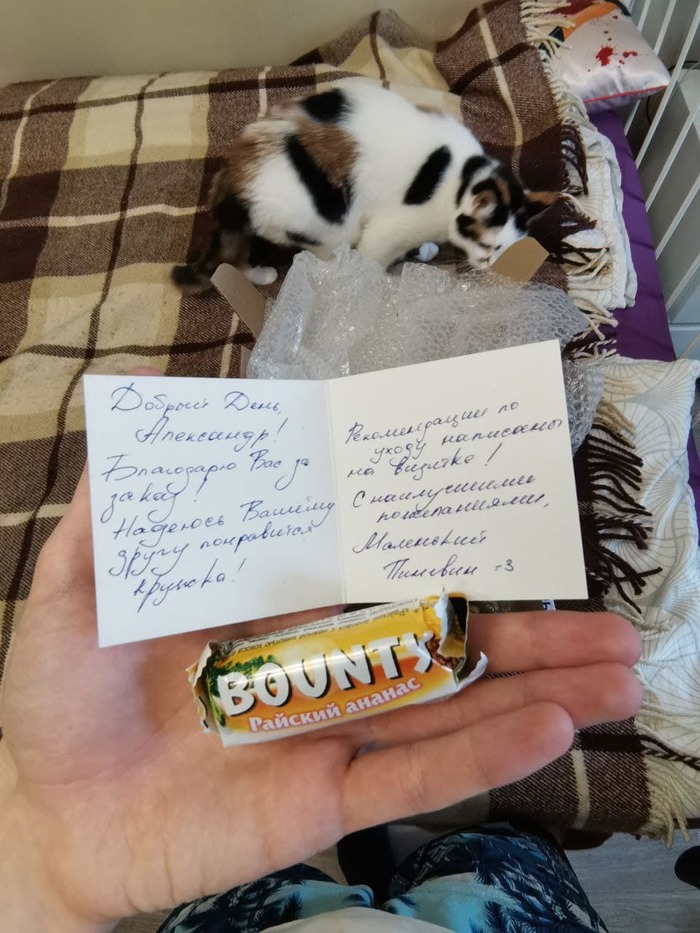 Добрый День,
Александр!
Благодарю Вас за
заказ!
Надеюсь Вашему
другу понравится
кружка!
Рекомендации по
уходу написаны
на визитке!
С наилучшими
пожеланиями,
Маленький
Пингвин =3
BOUNTY
Райский ананас